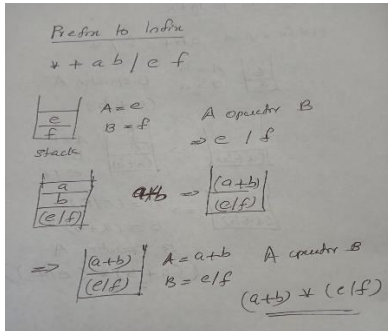 Prefix to Infix
* + a b / e f
e
f
stack
A = e
B = f
A operator B
⇒ e / f
a
b
(e/f)
⇒
(a+b)
(e/f)
⇒
(a+b)
(e/f)
A = a+b
B = e/f
A operator B
(a+b) * (e/f)